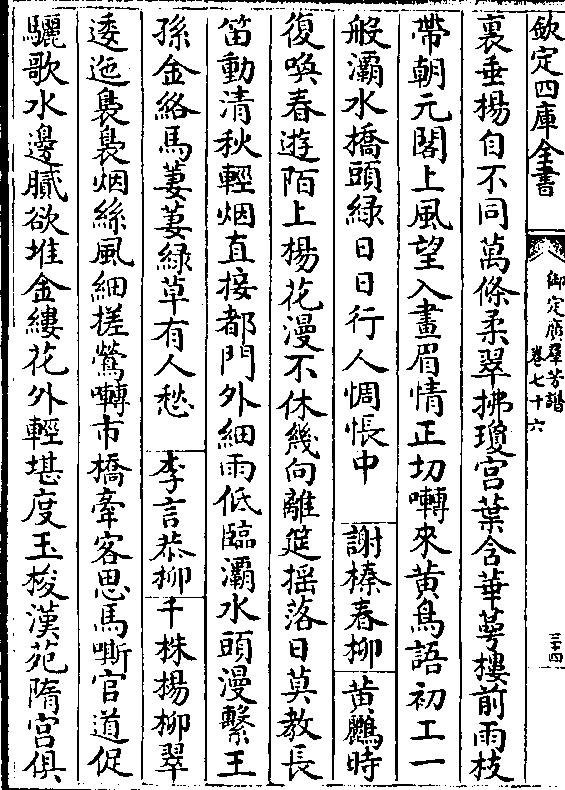 欽定四庫全書
御定廣羣芳譜
卷七十六
三十四
裏垂楊自不同萬條柔翠拂瓊宮葉含華萼樓前雨枝
帶朝元閣上風望入畫眉情正切囀來黄鳥語初工一
般灞水橋頭綠日日行人惆悵中 謝榛春柳 黄鸝時
復喚春遊陌上楊花漫不休幾向離筵揺落日莫教長
笛動清秋輕烟直接都門外細雨低臨灞水頭漫繫王
孫金絡馬萋萋緑草有人愁 李言恭柳 千株楊柳翠
逶迤裊裊烟絲風細搓鶯囀市橋牽客思馬嘶官道促
驪歌水邊膩欲堆金縷花外輕堪度玉梭漢苑隋宮俱